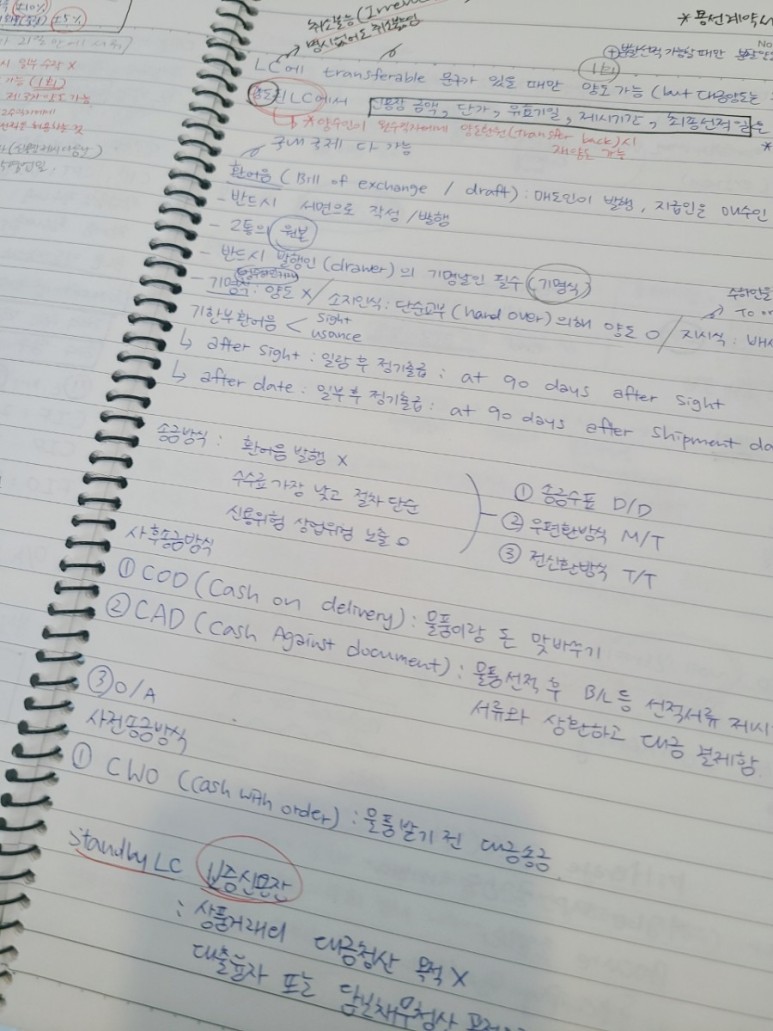 ±10%
±5%
취소불능 (Irre
명시 없어도 취소불능
*용선계약서
No
분할선적 가능할 때만 분할양
1회
LC에 transferable 문구가 있을 때만 양도 가능 (but 대금양도는
양도된 LC에서 신용장 금액, 단가, 유효기일, 제시기간, 최종선적일은
* 양수인이 원수익자에게 양도환원(transfer back)시
재양도 가능
국내 국제 다 가능
환어음 (Bill of exchange / draft) : 매도인이 발행, 지급인은 매수인
- 반드시 서면으로 작성/발행
- 2통의 원본
- 반드시 발행인(drawer)의 기명날인 필수 (기명식)
- 기명식 : 양도 X / 소지인식 : 단순교부(hand over)의해 양도 O / 지시식 : 배서
기한부환어음 < sight
usance
↳ after sight : 일람 후 정기출급 : at 90 days after sight
↳ after date : 일부 후 정기출급 : at 90 days after shipment da
송금방식 : 환어음 발행 X
수수료 가장 낮고 절차 단순
신용위험 상업위험 노출 O
① 송금수표 D/D
② 우편환방식 M/T
③ 전신환방식 T/T
사후송금방식
① COD (Cash on delivery) : 물품이랑 돈 맞바꾸기
② CAD (Cash Against document) : 물품선적 후 B/L 등 선적서류 제시
서류와 상환하고 대금 결제함.
③ O/A
사전송금방식
① CWO (Cash with order) : 물품받기 전 대금송금
Standby LC 보증신용장
: 상품거래의 대금청산 목적 X
대출융자 또는